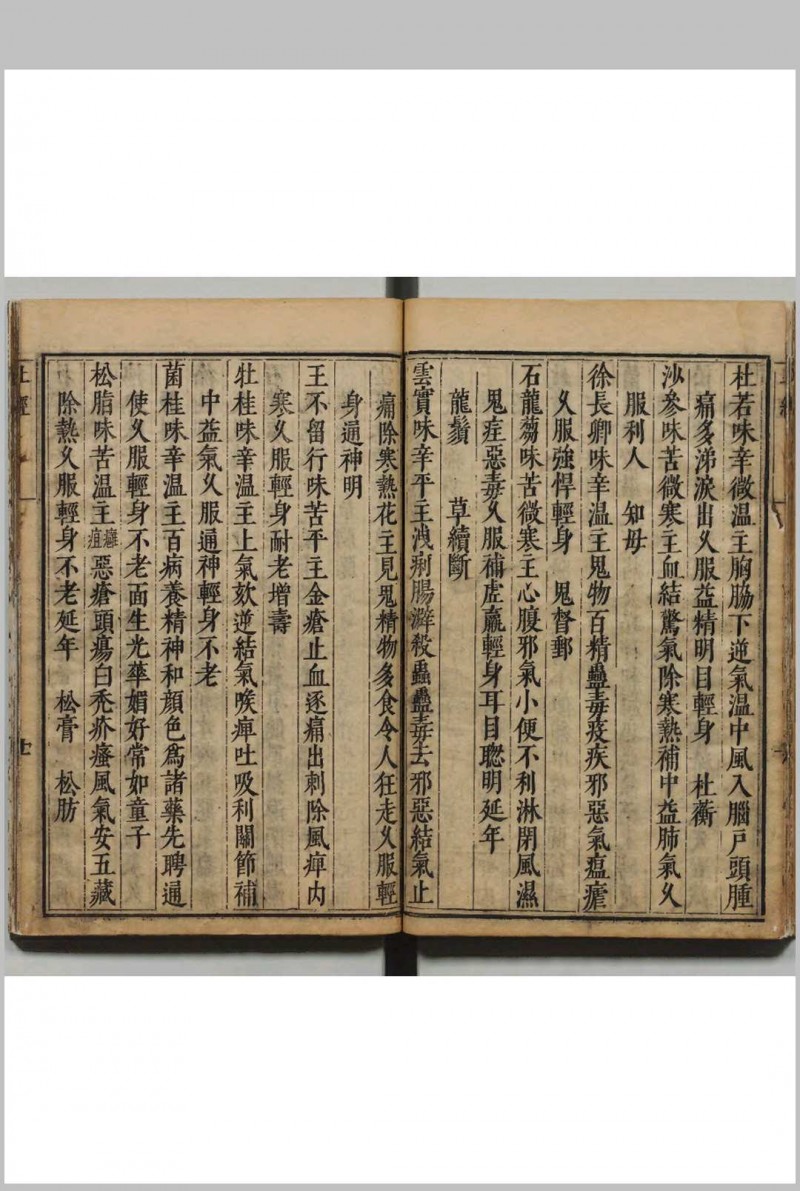 杜若味辛微温主胸脇下逆氣温中風入腦戸頭腫
痛多涕淚出乆服益精明目輕身　杜蘅
沙參味苦微寒主血結驚氣除寒熱補中益肺氣乆
服利人　知母
徐長卿味辛温主鬼物百精蠱毒疫疾邪惡氣瘟瘧
乆服強悍輕身　鬼督郵
石龍蒭味苦微寒主心腹邪氣小便不利淋閉風濕
鬼疰惡毒乆服補虛羸輕身耳目聦明延年
龍鬚　草續斷
雲實味辛平主洩痢腸澼殺蟲蠱毒去邪惡結氣止
痛除寒熱花主見鬼精物多食令人狂走乆服輕
身通神明
王不留行味苦平主金瘡止血逐痛出刺除風痺内
寒乆服輕身耐老增壽
牡桂味辛温主上氣欬逆結氣喉痺吐吸利關節補
中益氣乆服通神輕身不老
菌桂味辛温主百病養精神和顔色爲諸藥先聘通
使乆服輕身不老面生光華媚好常如童子
松脂味苦温主癰疽惡瘡頭瘍白禿疥瘙風氣安五藏
除熱乆服輕身不老延年　松膏　松肪
上經